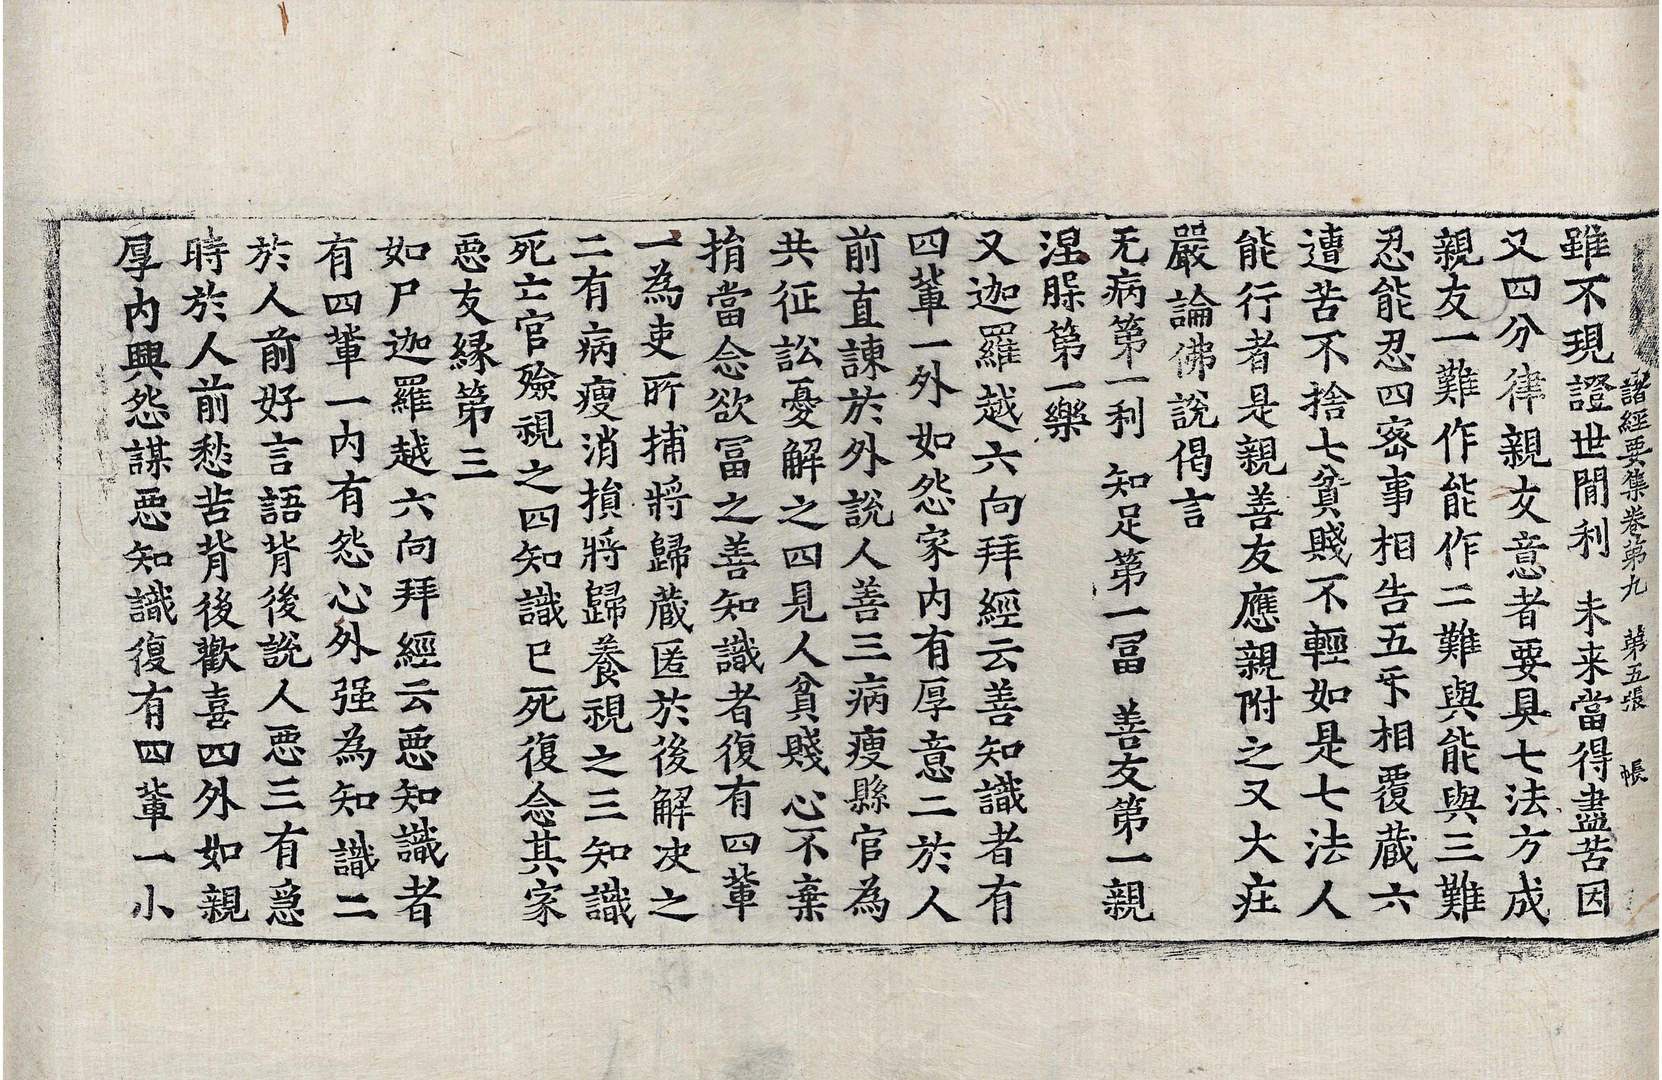 諸經要集卷第九　第五張　帳
雖不現證世間利　未来當得盡苦因
又四分律親友意者要具七法方成
親友一難作能作二難與能與三難
忍能忍四宻事相告五㸦相覆蔵六
遭苦不捨七貧賤不輕如是七法人
能行者是親善友應親附之又大庄
嚴論佛說偈言
无病第一利　知足第一冨　善友第一親
涅槃第一樂
又迦羅越六向拜經云善知識者有
四輩一外如怨家内有厚意二於人
前直諌於外說人善三病瘦縣官為
共征訟憂解之四見人貧賤心不棄
捐當念欲冨之善知識者復有四輩
一為吏所捕將歸蔵匿於後解决之
二有病瘦消損將歸養視之三知識
死亡官殮視之四知識已死復念其家
惡友緣第三
如尸迦羅越六向拜經云惡知識者
有四輩一内有怨心外强為知識二
於人前好言語背後說人惡三有急
時於人前愁苦背後歡喜四外如親
厚内興怨謀惡知識復有四輩一小